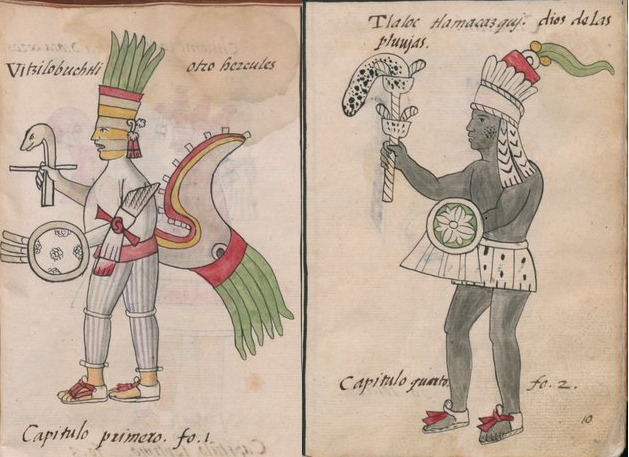 Vitzilobuchtli otro hercules
Capitulo primero. fo. 1.
Tlaloc tlamacazquj. dios de las
pluuias.
Capitulo quarto. fo. 2.
10